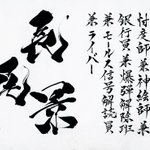 忖度師兼神絵師兼
銀行員兼爆弾解除班
兼モールス信号解読員
兼ライバー
長尾景